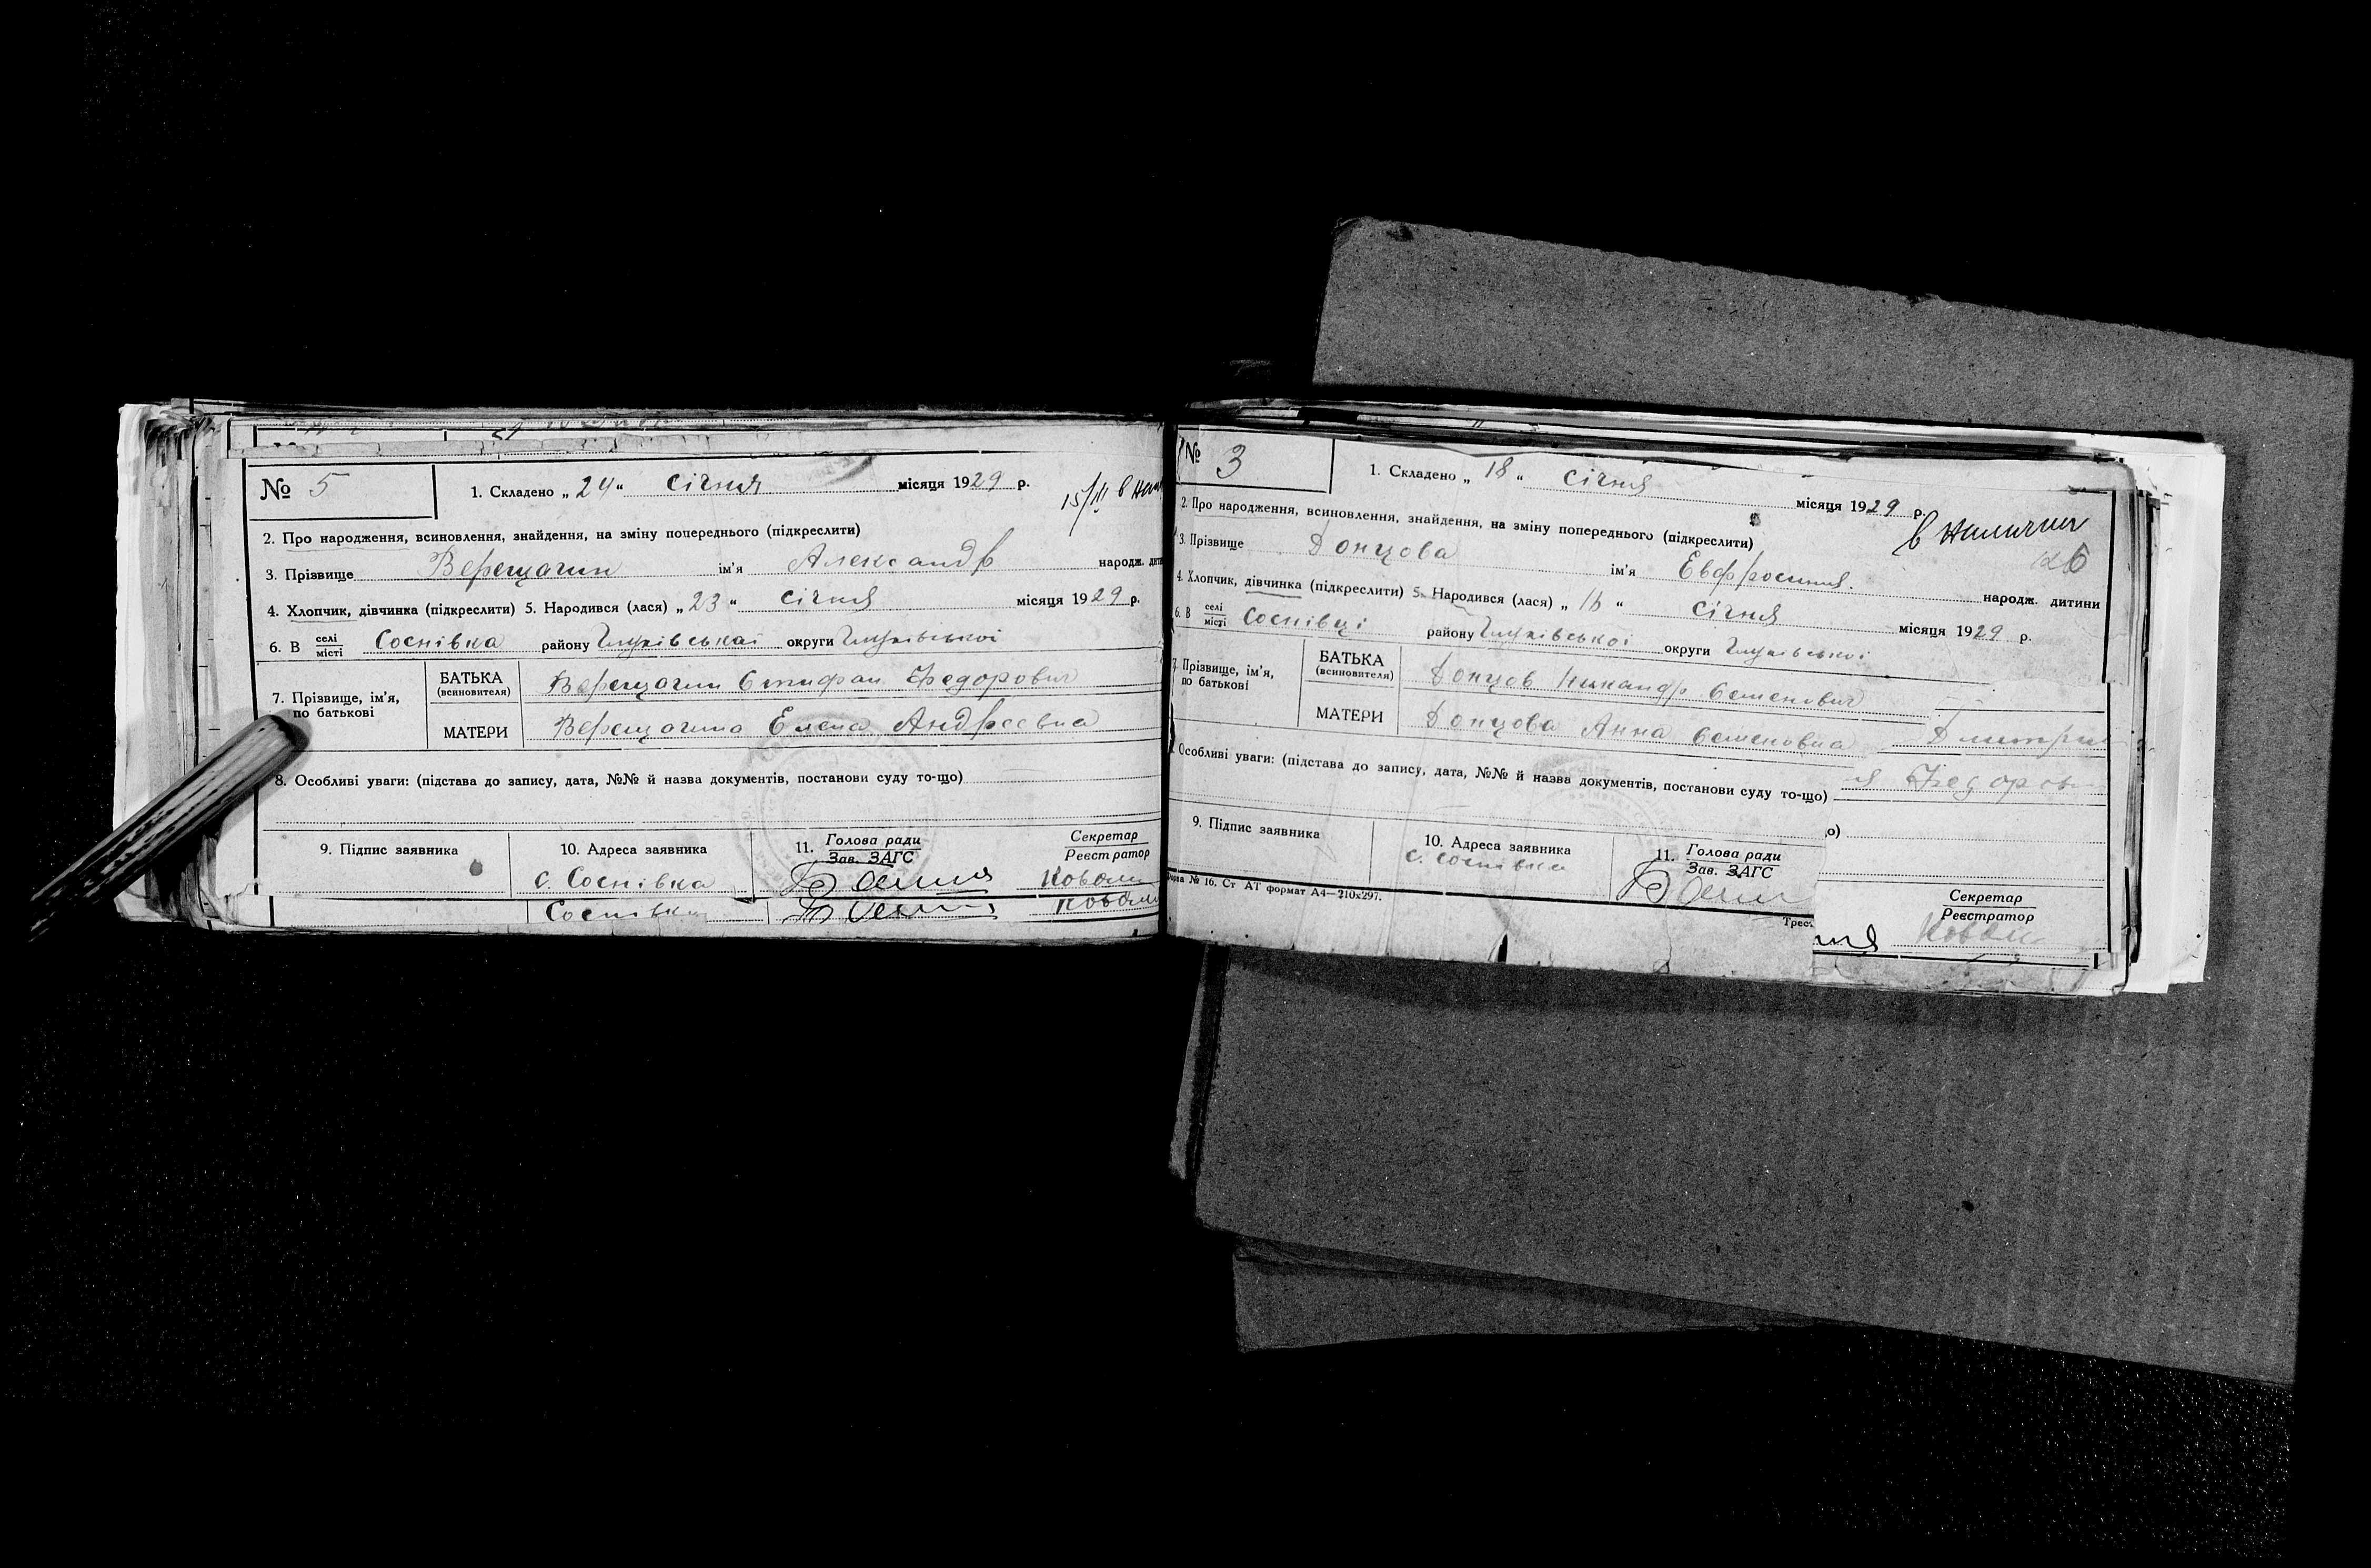 № 5
1. Складено „ 24 “ січня місяця 1929 р.
15/III в
2. Про народження, всиновлення, знайдення, на зміну попереднього (підкреслити)
3. Прізвище Верещагин ім'я Александр народж.
4. Хлопчик, дівчинка (підкреслити) 5. Народився (лася) „ 23 “ січня місяця 1929 р.
6. В селі місті Соснівка району Глухівськаі округи Глухівськоі
7. Прізвище, ім'я, по батькові
БАТЬКА (всиновителя) Верещагин Стифан Федорович
МАТЕРИ Верещагина Елена Андреевна
8. Особливі уваги: (підстава до запису, дата, №№ й назва документів, постанови суду то-що)
9. Підпис заявника
10. Адреса заявника
с. Соснівка
11. Голова ради
Зав. ЗАГС
Секретар
Реєстратор
Соснівка
№ 3
1. Складено „ 18 “ січня місяця 1929 р.
в наличии
2. Про народження, всиновлення, знайдення, на зміну попереднього (підкреслити)
3. Прізвище Донцова ім'я Евфросиния. народж. дитини
4. Хлопчик, дівчинка (підкреслити) 5. Народився (лася) „ 16 “ січня місяця 1929 р.
6. В селі місті Соснівці району Глухівськоі округи Глухівськоі
7. Прізвище, ім'я, по батькові
БАТЬКА (всиновителя) Донцов Никандр Семенович
МАТЕРИ Донцова Анна Семеновна
Особливі уваги: (підстава до запису, дата, №№ й назва документів, постанови суду то-що)
о)
9. Підпис заявника
10. Адреса заявника
с. Соснівка
11. Голова ради
Зав. ЗАГС
Секретар
Реєстратор
№ 16. Ст АТ формат А4—210х297.
Трест